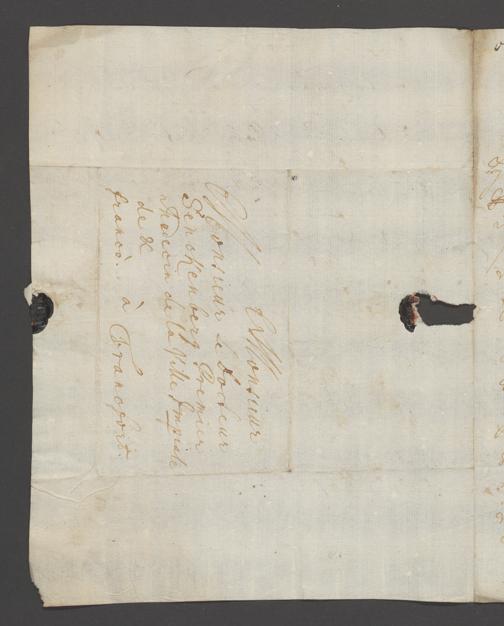 Monsieur
Monsieur le docteur
Senckenberg Premier
Medecin de la Ville Impiale
de &
franco. à Francfort.